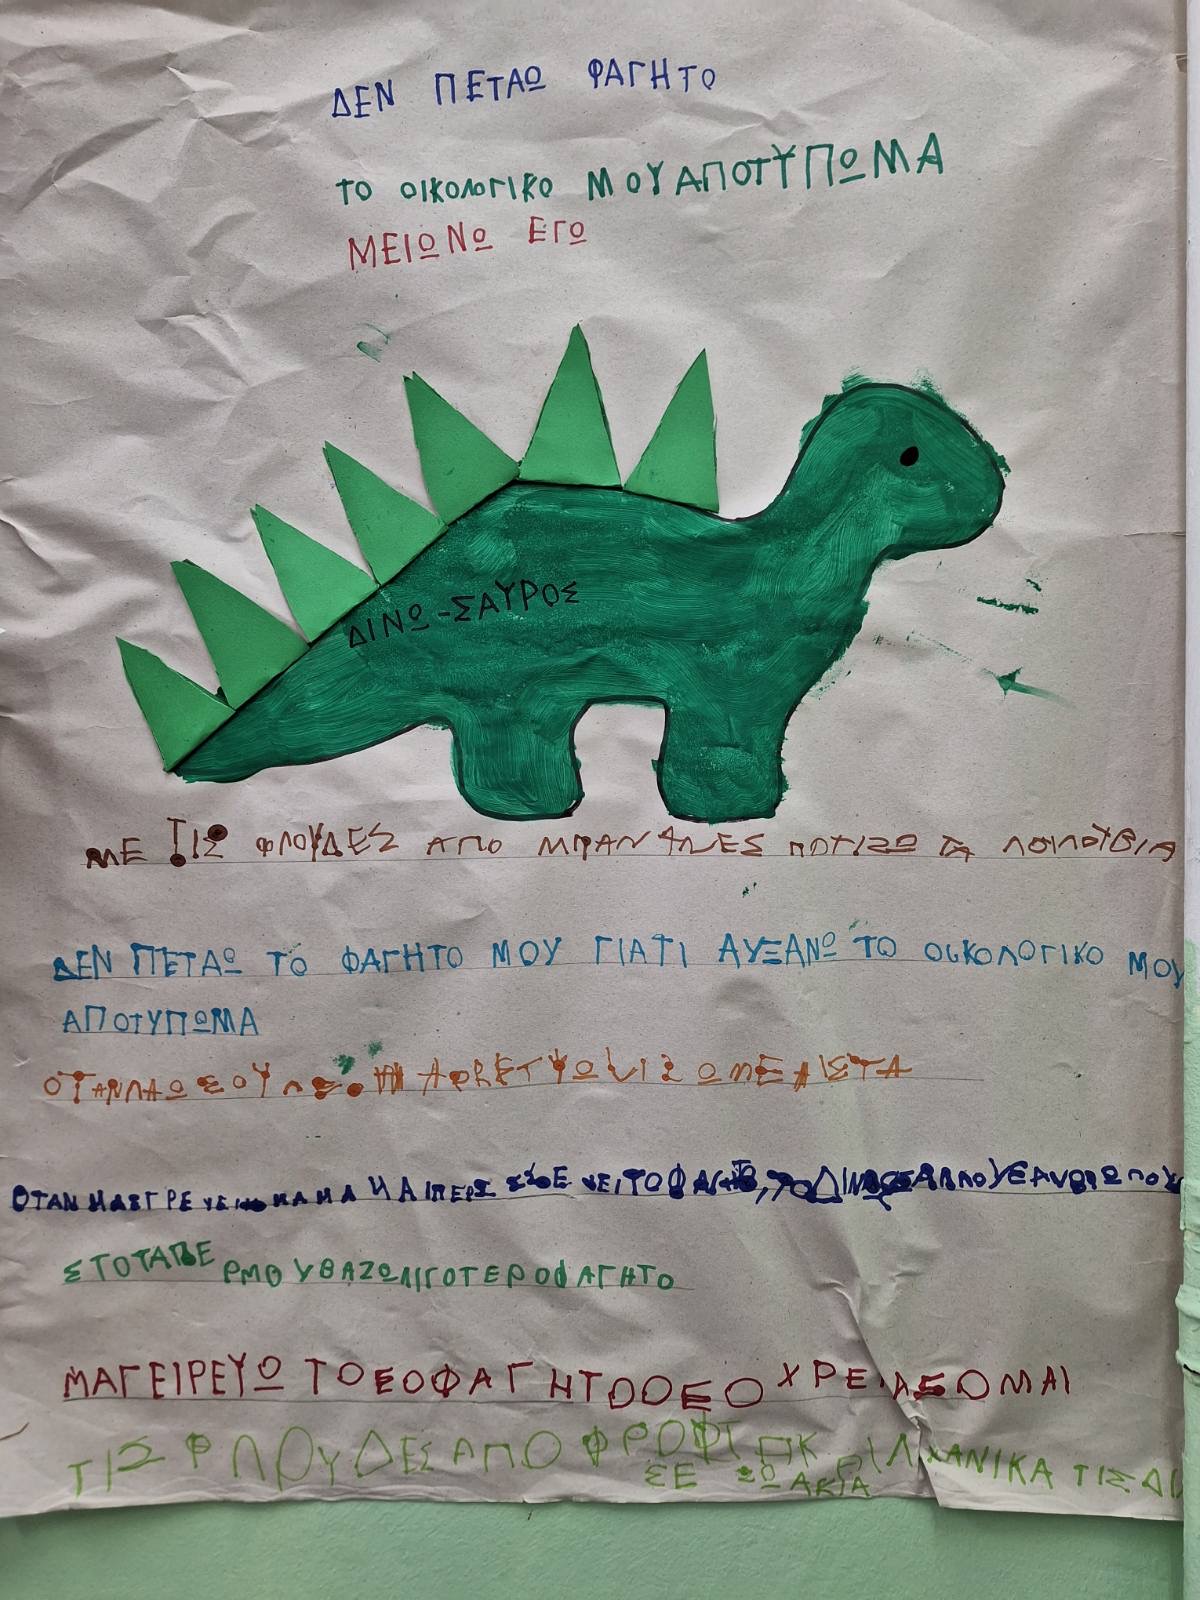 ΔΕΝ ΠΕΤΑΩ ΦΑΓΗΤΟ
ΤΟ ΟΙΚΟΛΟΓΙΚΟ ΜΟΥ ΑΠΟΤΥΠΩΜΑ
ΜΕΙΩΝΩ ΕΓΩ
ΔΙΝΩ-ΣΑΥΡΟΣ
ΜΕ ΤΙΣ ΦΛΟΥΔΕΣ ΑΠΟ ΜΠΑΝΑΝΕΣ ΠΟΤΙΖΩ ΤΑ ΛΟΥΛΟΥΒΙΑ
ΔΕΝ ΠΕΤΑΩ ΤΟ ΦΑΓΗΤΟ ΜΟΥ ΓΙΑΤΙ ΑΥΞΑΝΩ ΤΟ ΟΙΚΟΛΟΓΙΚΟ ΜΟΥ
ΑΠΟΤΥΠΩΜΑ
ΟΤΑΝ ΠΑΩ ΣΟΥΠΕΡ
ΟΤΑΝ ΜΑΓΡΕΥΕΙ ΜΑΜΑ
ΣΤΟ ΤΑΠΕΡ ΜΟΥ ΒΑΖΩ ΛΙΓΟΤΕΡΟ ΦΑΓΗΤΟ
ΜΑΓΕΙΡΕΥΩ ΤΟΣΟ ΦΑΓΗΤΟ ΟΣΟ ΧΡΕΙΑΖΟΜΑΙ
ΤΙΣ ΦΛΟΥΔΕΣ ΑΠΟ ΦΡΟΥΤ ΛΑΧΑΝΙΚΑ ΤΙΣ ΔΙ
ΣΕ ΖΩΑΚΙΑ